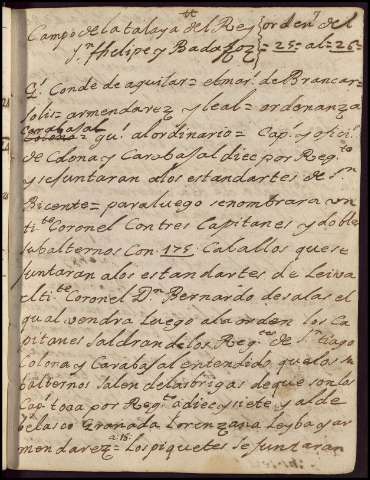 Campo de la talaya del Rey orden del
Sn. Phelipe y Badaxoz = 25 = al = 26 =
Gl. Conde de aguilar = el mar. de Brancar =
solis = armendarez y leal = ordenanza
Carabaxal
gu.l al ordinario = Cap. y ofici.
de Colona y Carabaxal diez por Reg.to
y se juntaran a los estandartes de Sn.
Bicente = para luego se nombrara un
ti.te Coronel Con tres Capitanes y doble
subalternos Con 175 Caballos que se
juntaran a los estandartes de Leiva
el ti.te Coronel Dn. Bernardo de salas el
qual vendra luego a la orden los Ca
pitanes saldran de los Reg.tos de S.tiago
Colona y Carabaxal entendido que los su
balternos salen de las brigas de que son los
Cap. toca por Reg.to a diez y siete y al de
belasco Granada Lorenzana Leyba y ar
mendarez a 18 = los piquetes se juntaran